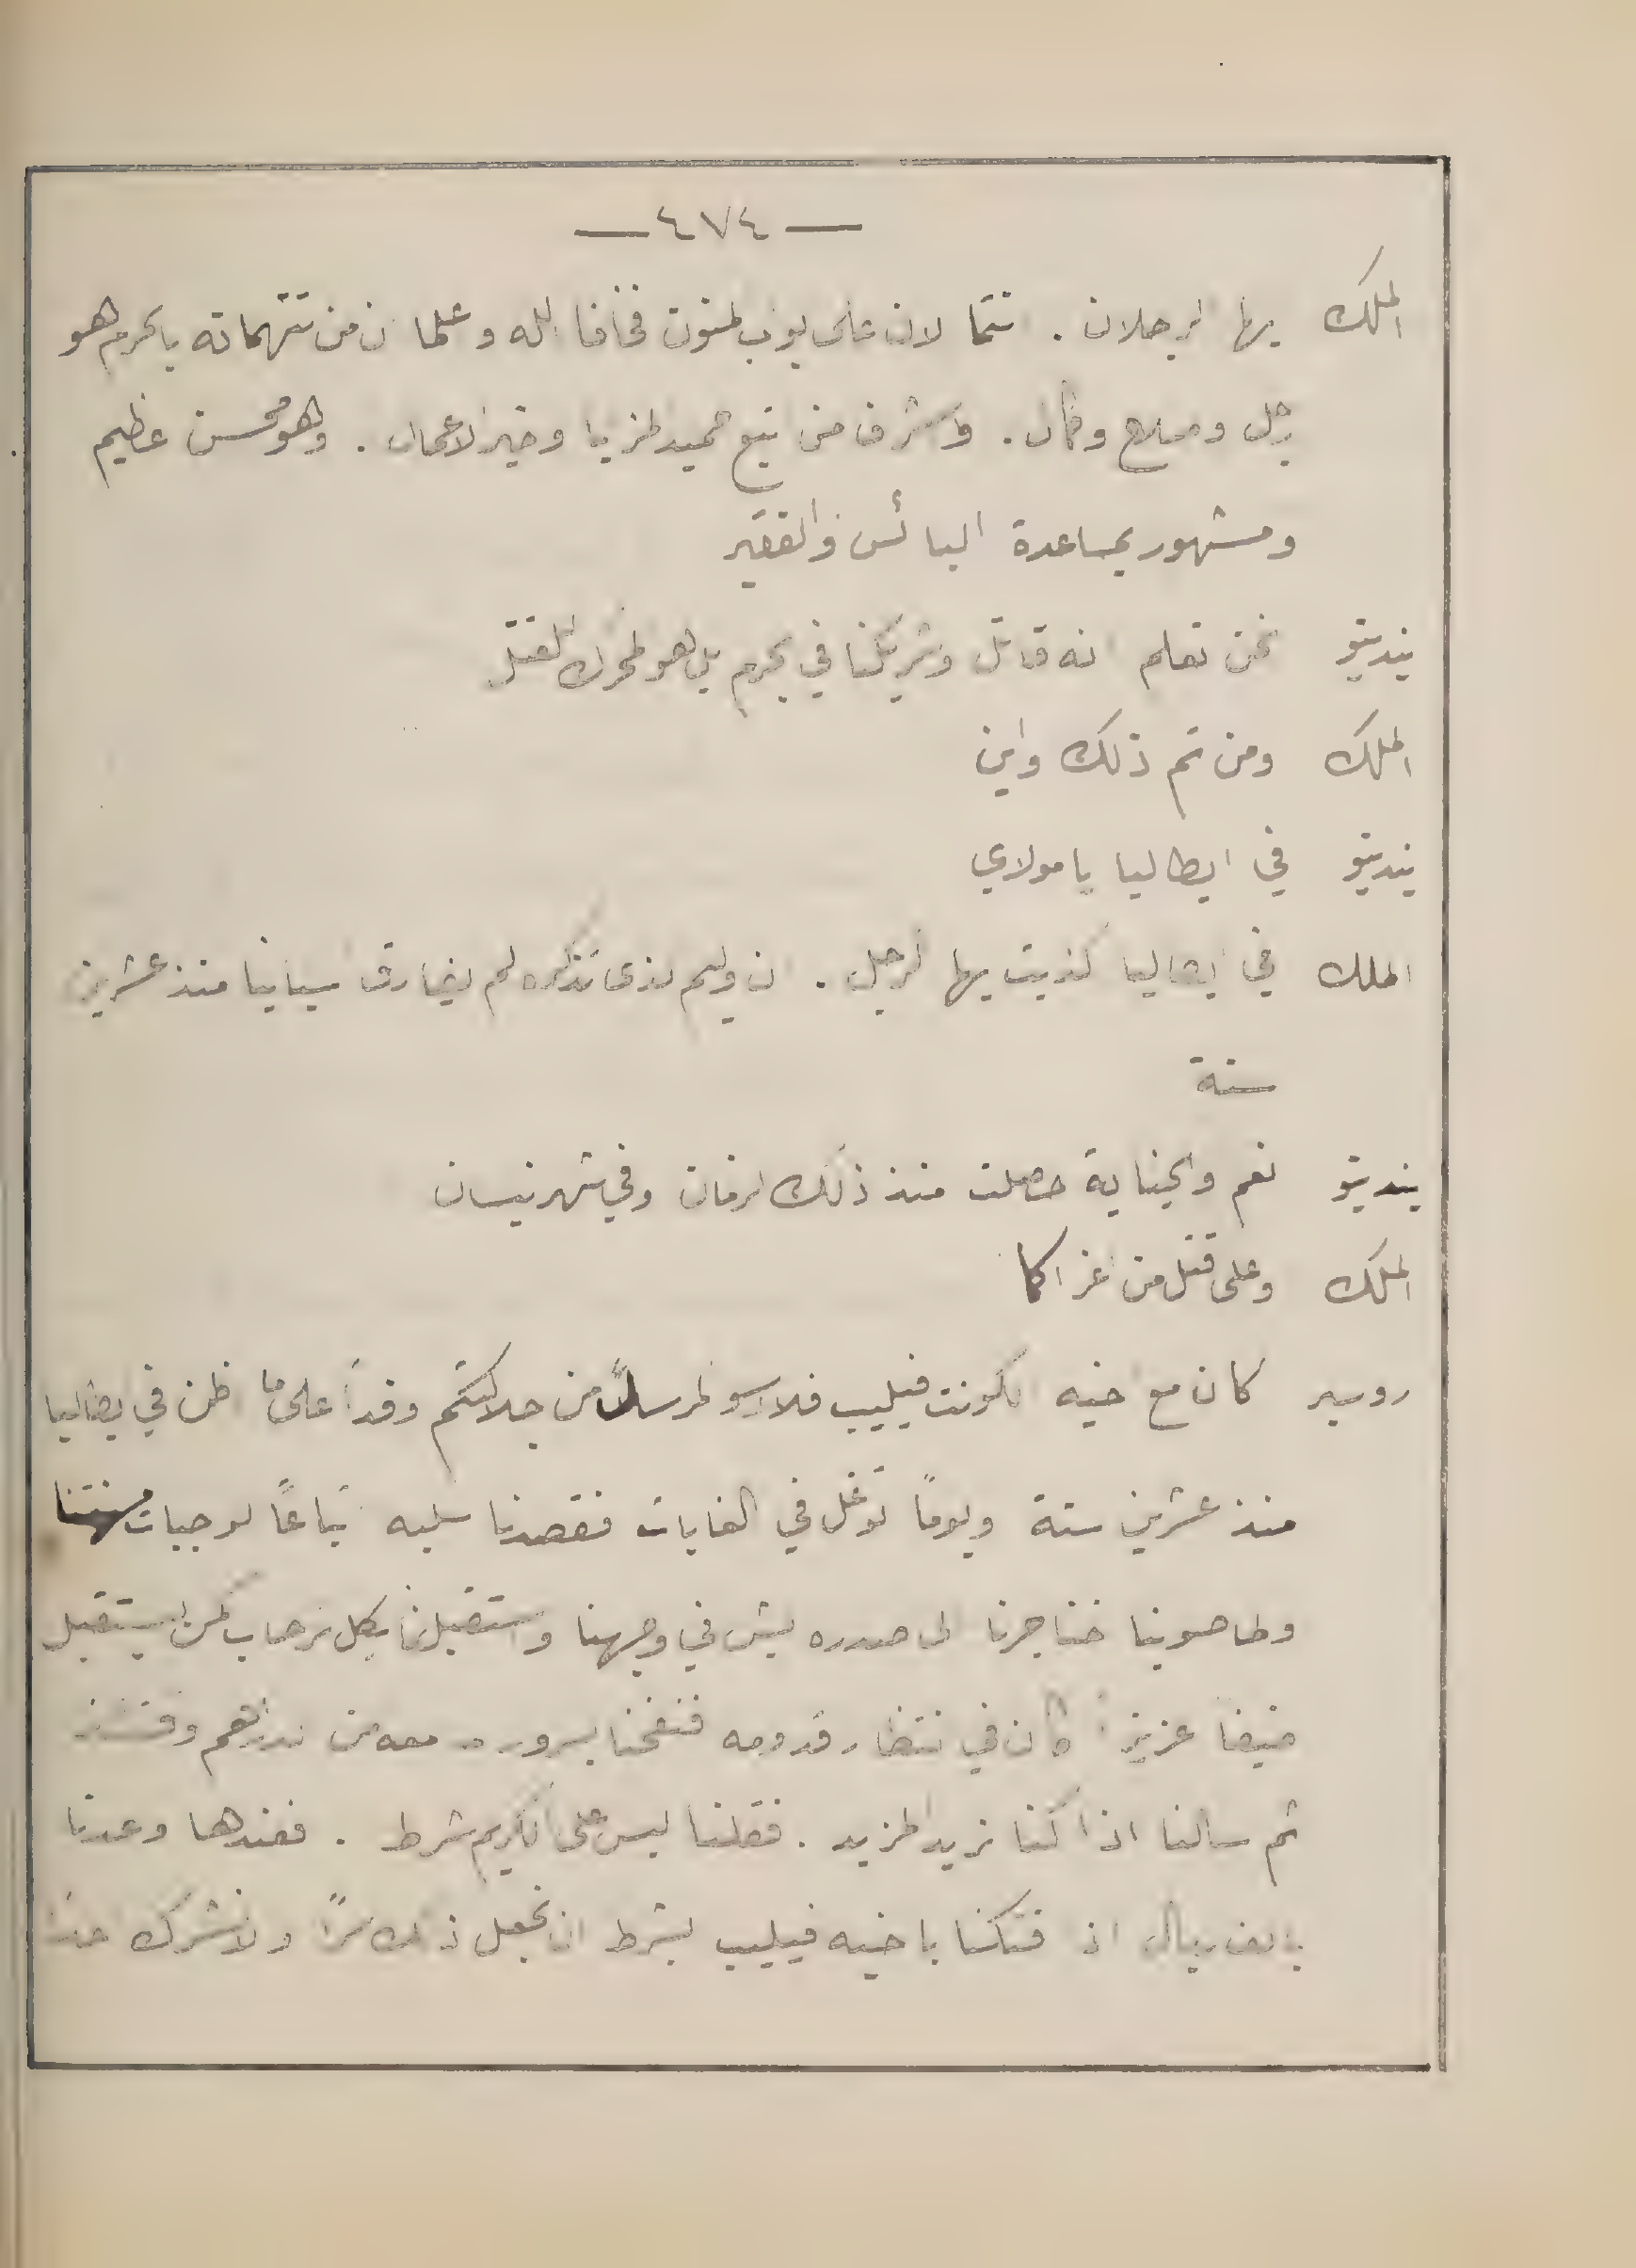 — ٤٧٤ —
الملك ايها الرجلان . انتما الان على ابواب المنون فخافا الله واعلما ان من تتهمانه بالجرم هو
رجل وصلاح وكمال . واشرف من اتبع حميد المزايا وخير الاعمال . وهو محسن عظيم
ومشهور بمساعدة البائس والفقير
بنديتو نحن نعلم انه قاتل وشريكنا في الجرم بل هو المحرك للقتل
الملك ومن تم ذلك واين
بنديتو في ايطاليا يا مولاي
الملك في ايطاليا كذبت ايها الرجل . ان وليم الذي تذكره لم يفارق اسبانيا منذ عشرين
سنة
بنديتو نعم والجناية حصلت منذ ذلك الزمان وفي شهر نيسان
الملك وعلى قتل من اغراكما
روبير كان مع اخيه الكونت فيليب فلاسو المرسل من جلالتكم وفداً على ما اظن في ايطاليا
منذ عشرين سنة ويوماً توغل في الغابات فقصدنا سلبه اتباعاً لواجبات مهنتنا
ولما صوبنا خناجرنا الى صدره بش في وجهنا واستقبلنا بكل ترحاب كمن يستقبل
ضيفا عزيزا كان في انتظار قدومه فنفحنا بسرور معه من الدراهم
ثم سالنا اذا كنا نريد المزيد . فقلنا ليس على الكريم شرط . فعندها وعدنا
بالف ريال اذا فتكنا باخيه فيليب بشرط ان نجعل ذلك سرًا ولا نشرك احدًا